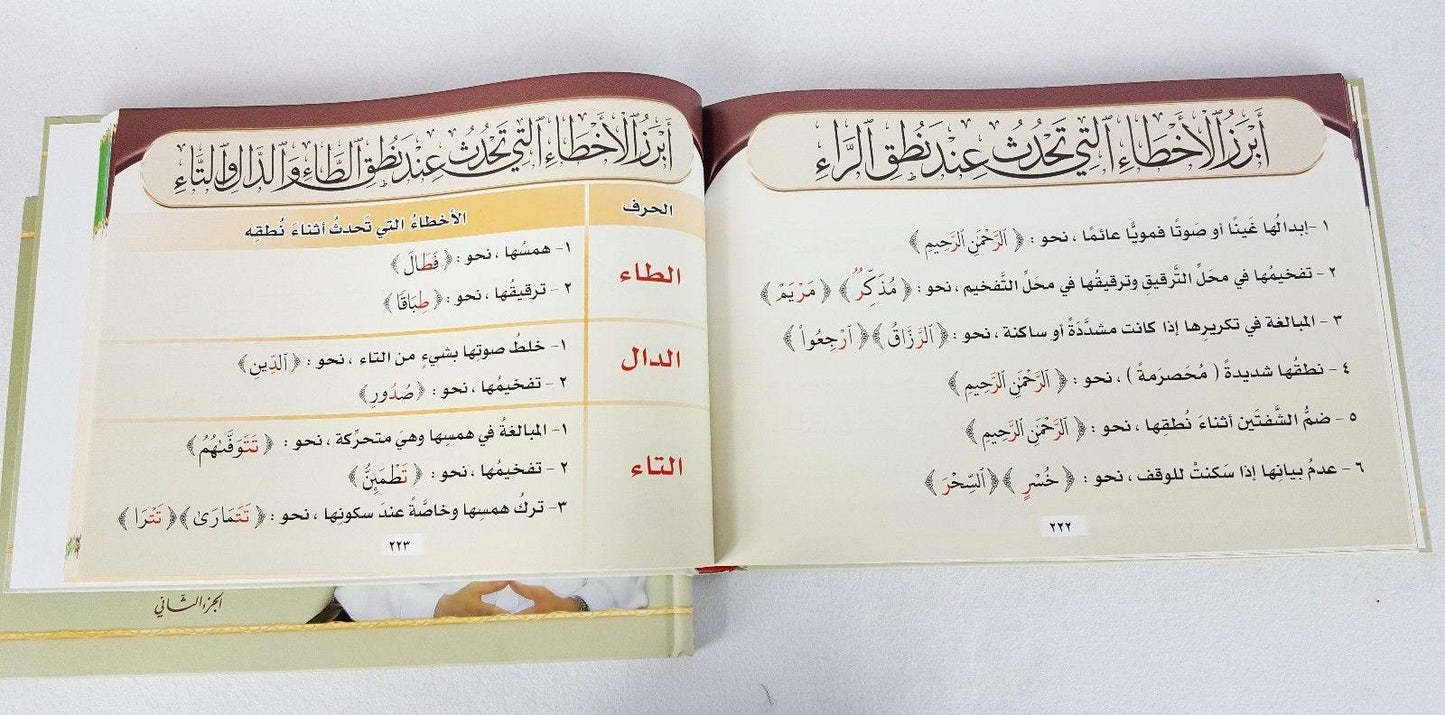 أَبْرَزُ الْأَخْطَاءِ الَّتِي تَحْدُثُ عِنْدَ نُطْقِ الرَّاءِ
١ -إبدالُها غَينًا أو صَوتًا فمويًّا عائمًا ، نحو : ﴿ ٱلرَّحْمَٰنِ ٱلرَّحِيمِ ﴾
٢ - تفخيمُها في محَلِّ التَّرقيقِ وترقيقُها في محَلِّ التَّفخيم ، نحو : ﴿ مُذَكِّرٌ ﴾ ﴿ مَرْيَمَ ﴾
٣ - المبالغة في تكريرِها إذا كانت مشدَّدَةً أو ساكنة ، نحو : ﴿ ٱلرَّزَّاقُ ﴾ ﴿ ٱرْجِعُوا۟ ﴾
٤ - نطقُها شديدةً ( مُحَصرَمةً ) ، نحو : ﴿ ٱلرَّحْمَٰنِ ٱلرَّحِيمِ ﴾
٥ - ضمُّ الشَّفتَين أثناءَ نُطقِها ، نحو : ﴿ ٱلرَّحْمَٰنِ ٱلرَّحِيمِ ﴾
٦ - عدمُ بيانِها إذا سَكنتْ للوقف ، نحو : ﴿ خُسْرٍ ﴾ ﴿ ٱلسِّحْرَ ﴾
٢٢٢
أَبْرَزُ الْأَخْطَاءِ الَّتِي تَحْدُثُ عِنْدَ نُطْقِ الطَّاءِ وَالدَّالِ وَالتَّاءِ
الحرف الأخطاءُ التي تَحدثُ أثناءَ نُطقِه
الطاء
١- همسُها ، نحو : ﴿ فَطَالَ ﴾
٢ - ترقيقُها ، نحو : ﴿ طِبَاقًا ﴾
الدال
١- خلطُ صوتِها بشيءٍ من التاء ، نحو : ﴿ ٱلدِّينِ ﴾
٢ - تفخيمُها ، نحو : ﴿ صُدُورِ ﴾
التاء
١- المبالغةُ في همسِها وهيَ متحرِّكة ، نحو : ﴿ تَتَوَفَّىٰهُمُ ﴾
٢ - تفخيمُها ، نحو : ﴿ تَطْمَئِنُّ ﴾
٣- تركُ همسِها وخاصَّةً عندَ سكونِها ، نحو : ﴿ تَتَمَارَىٰ ﴾ ﴿ تَتْرَا ﴾
٢٢٣
الجزء الثاني